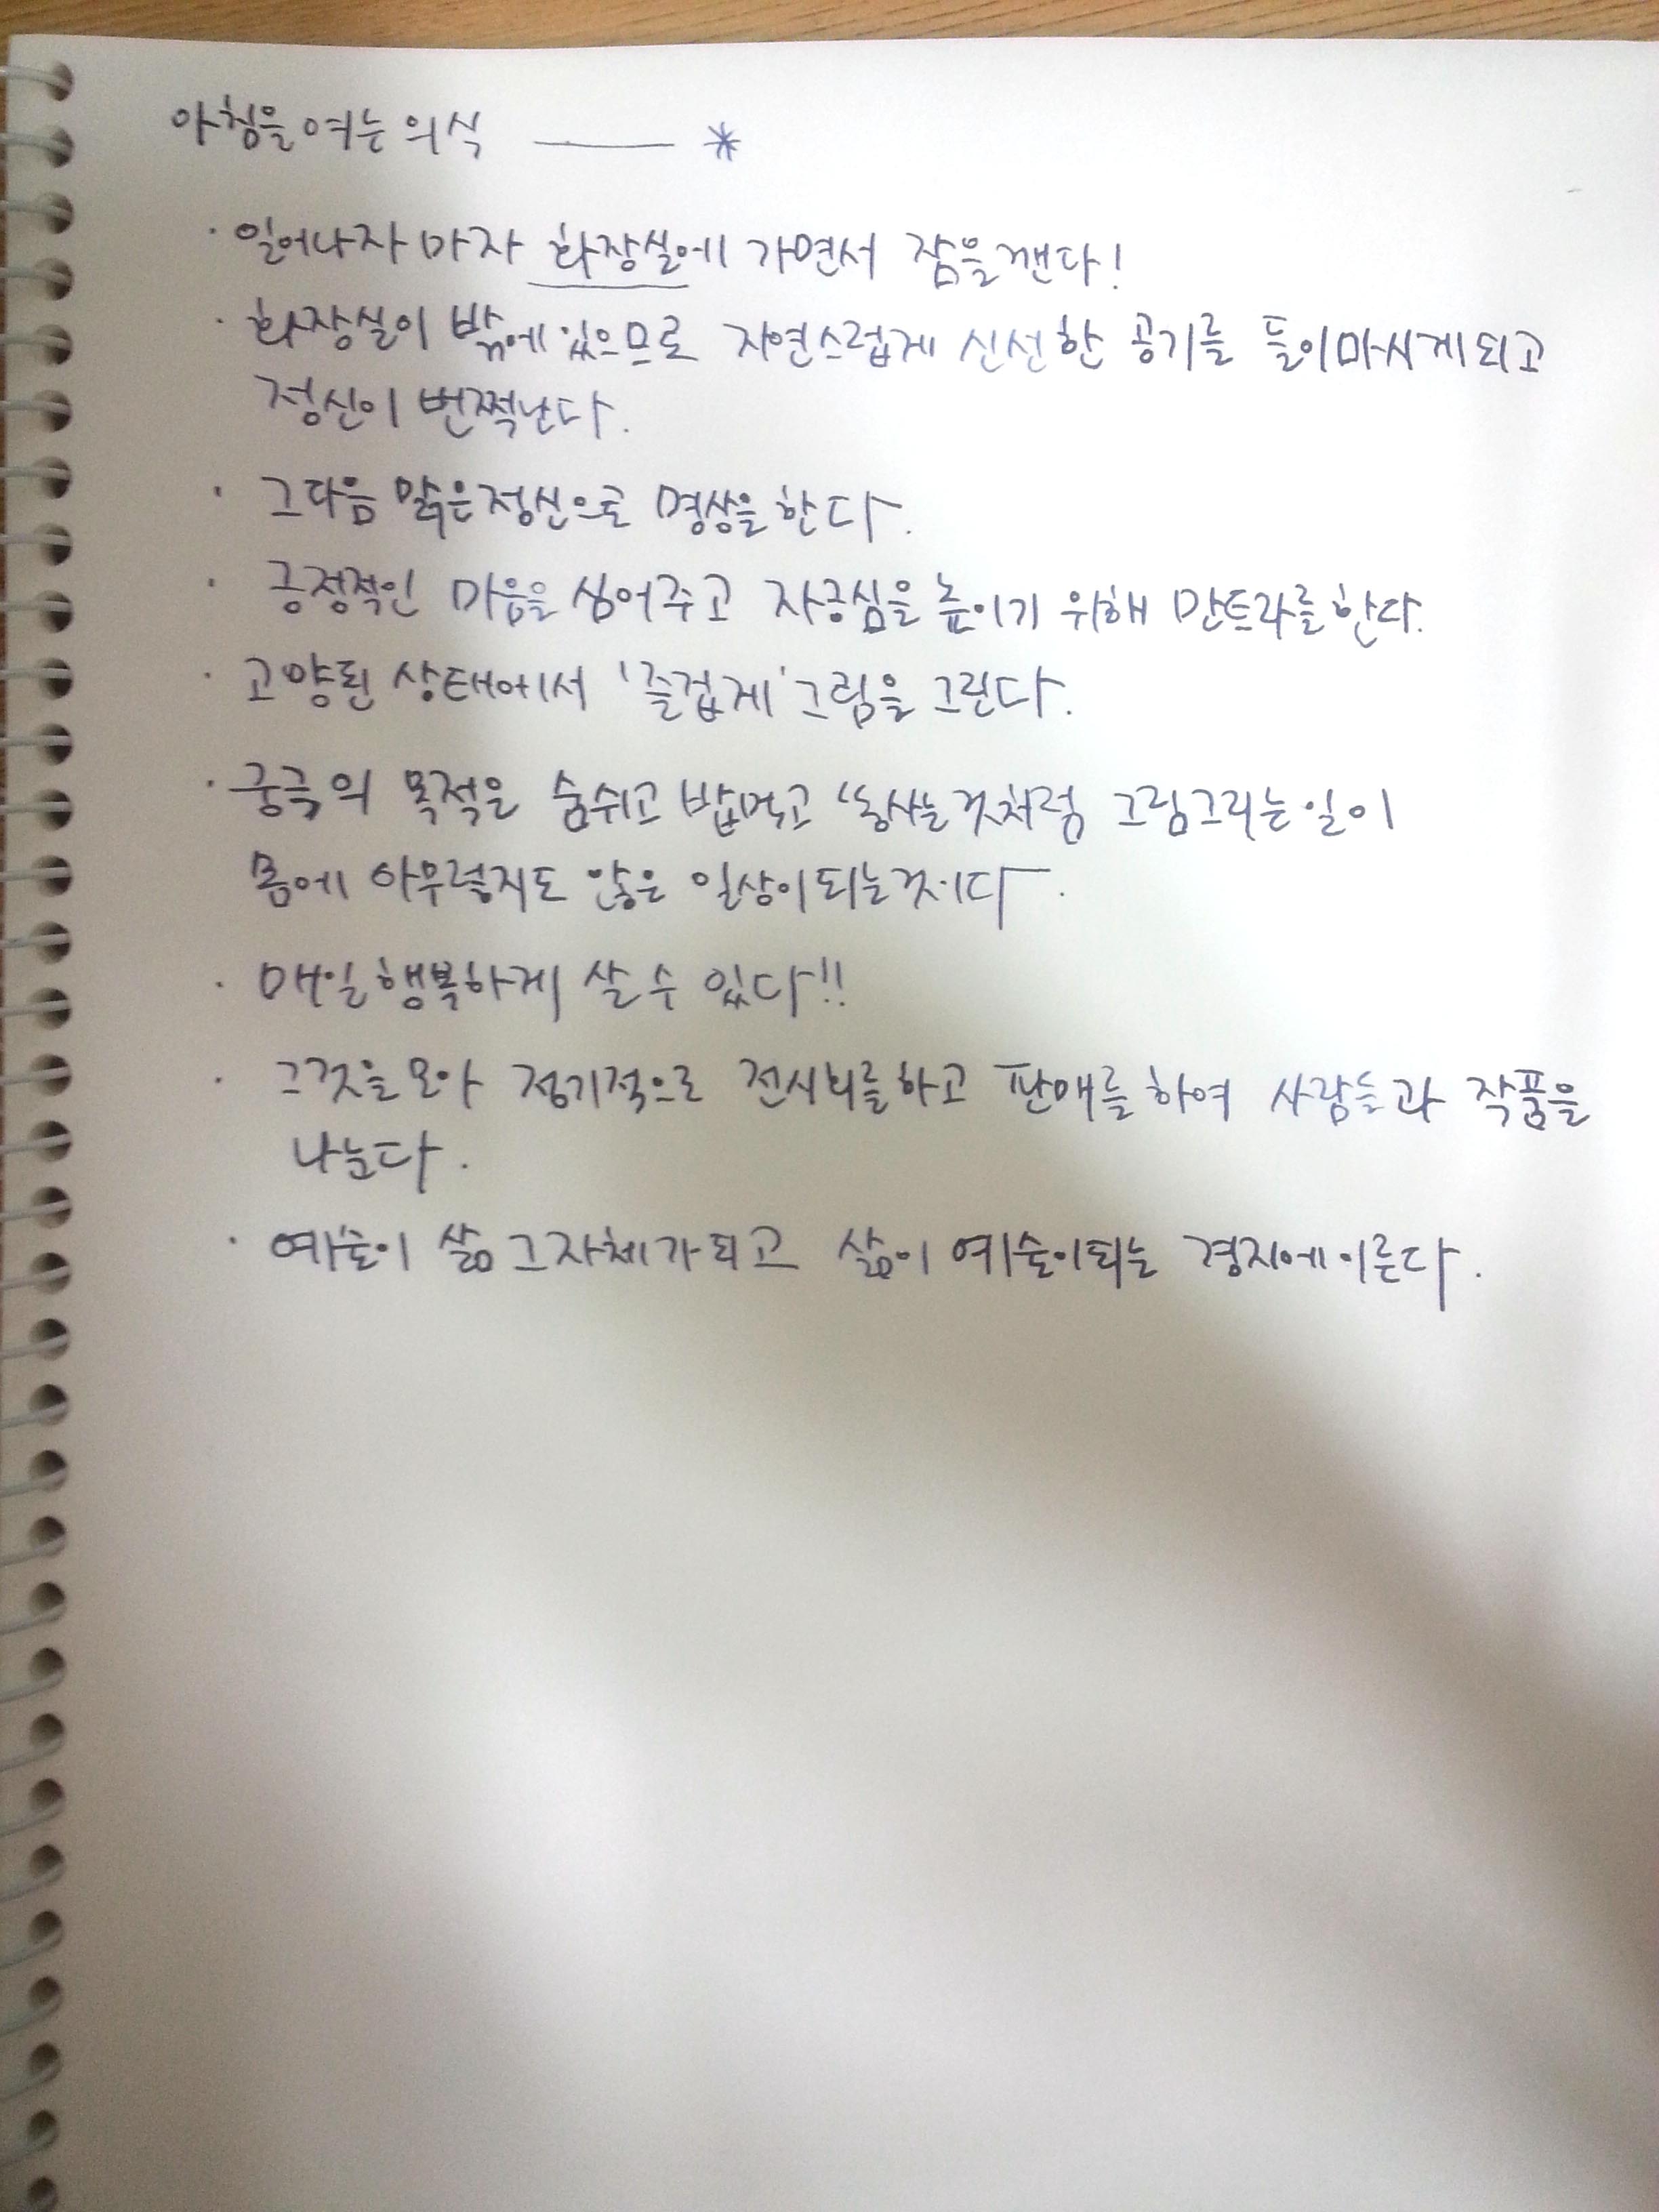 아침을 여는 의식 —— *
· 일어나자 마자 화장실에 가면서 잠을 깬다!
· 화장실이 밖에 있으므로 자연스럽게 신선한 공기를 들이마시게 되고
정신이 번쩍난다.
· 그다음 맑은 정신으로 명상을 한다.
· 긍정적인 마음을 심어주고 자긍심을 높이기 위해 만트라를 한다.
· 고양된 상태에서 '즐겁게' 그림을 그린다.
· 궁극의 목적은 숨쉬고 밥먹고 똥싸는 것처럼 그림그리는 일이
몸에 아무렇지도 않은 일상이 되는 것이다.
· 매일 행복하게 살 수 있다!!
· 그것을 모아 정기적으로 전시회를 하고 판매를 하여 사람들과 작품을
나눈다.
· 예술이 삶 그 자체가 되고 삶이 예술이 되는 경지에 이른다.